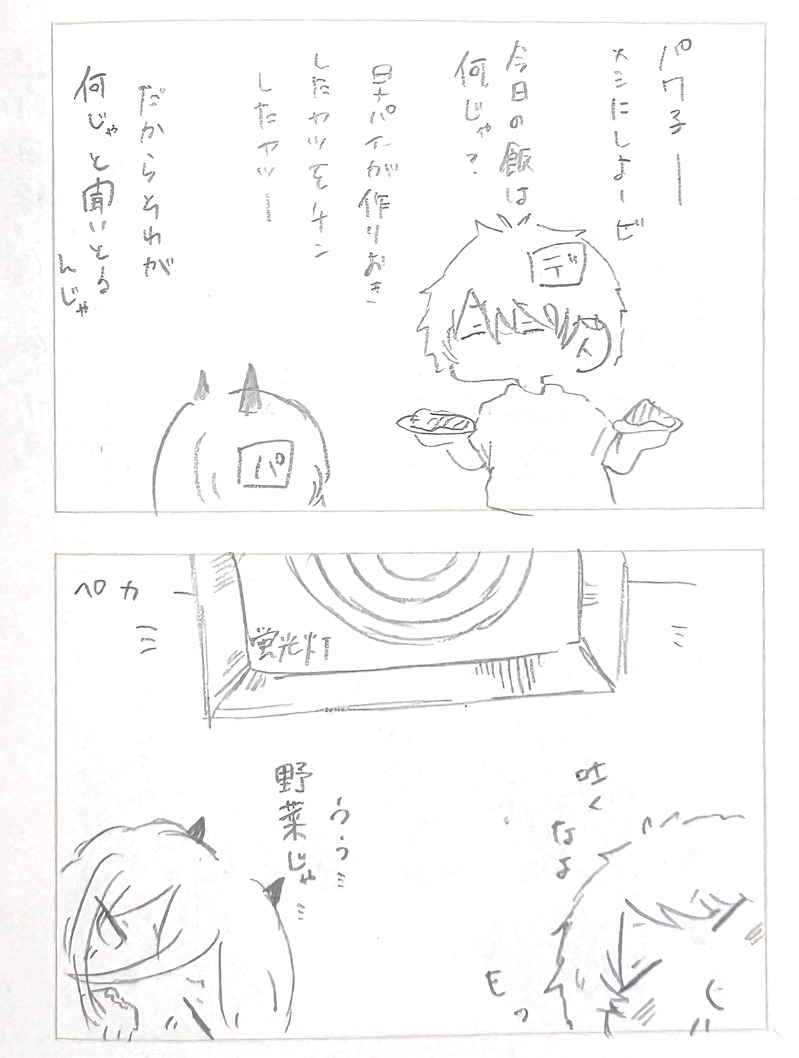 パワ子ー
メシにしよーぜ
今日の飯は
何じゃ?
早パイが作りおき
したヤツをチン
したヤツー
だからそれが
何じゃと聞いとる
んじゃ
デ
パ
ペカ
蛍光灯
吐く
なよ
うっ…
野菜じゃ…
モっ